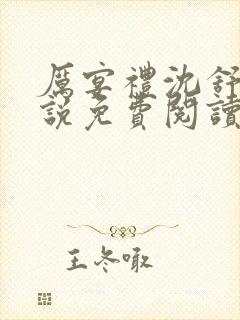 厲宴禮沈舒
說免費閱讀
王冬噉